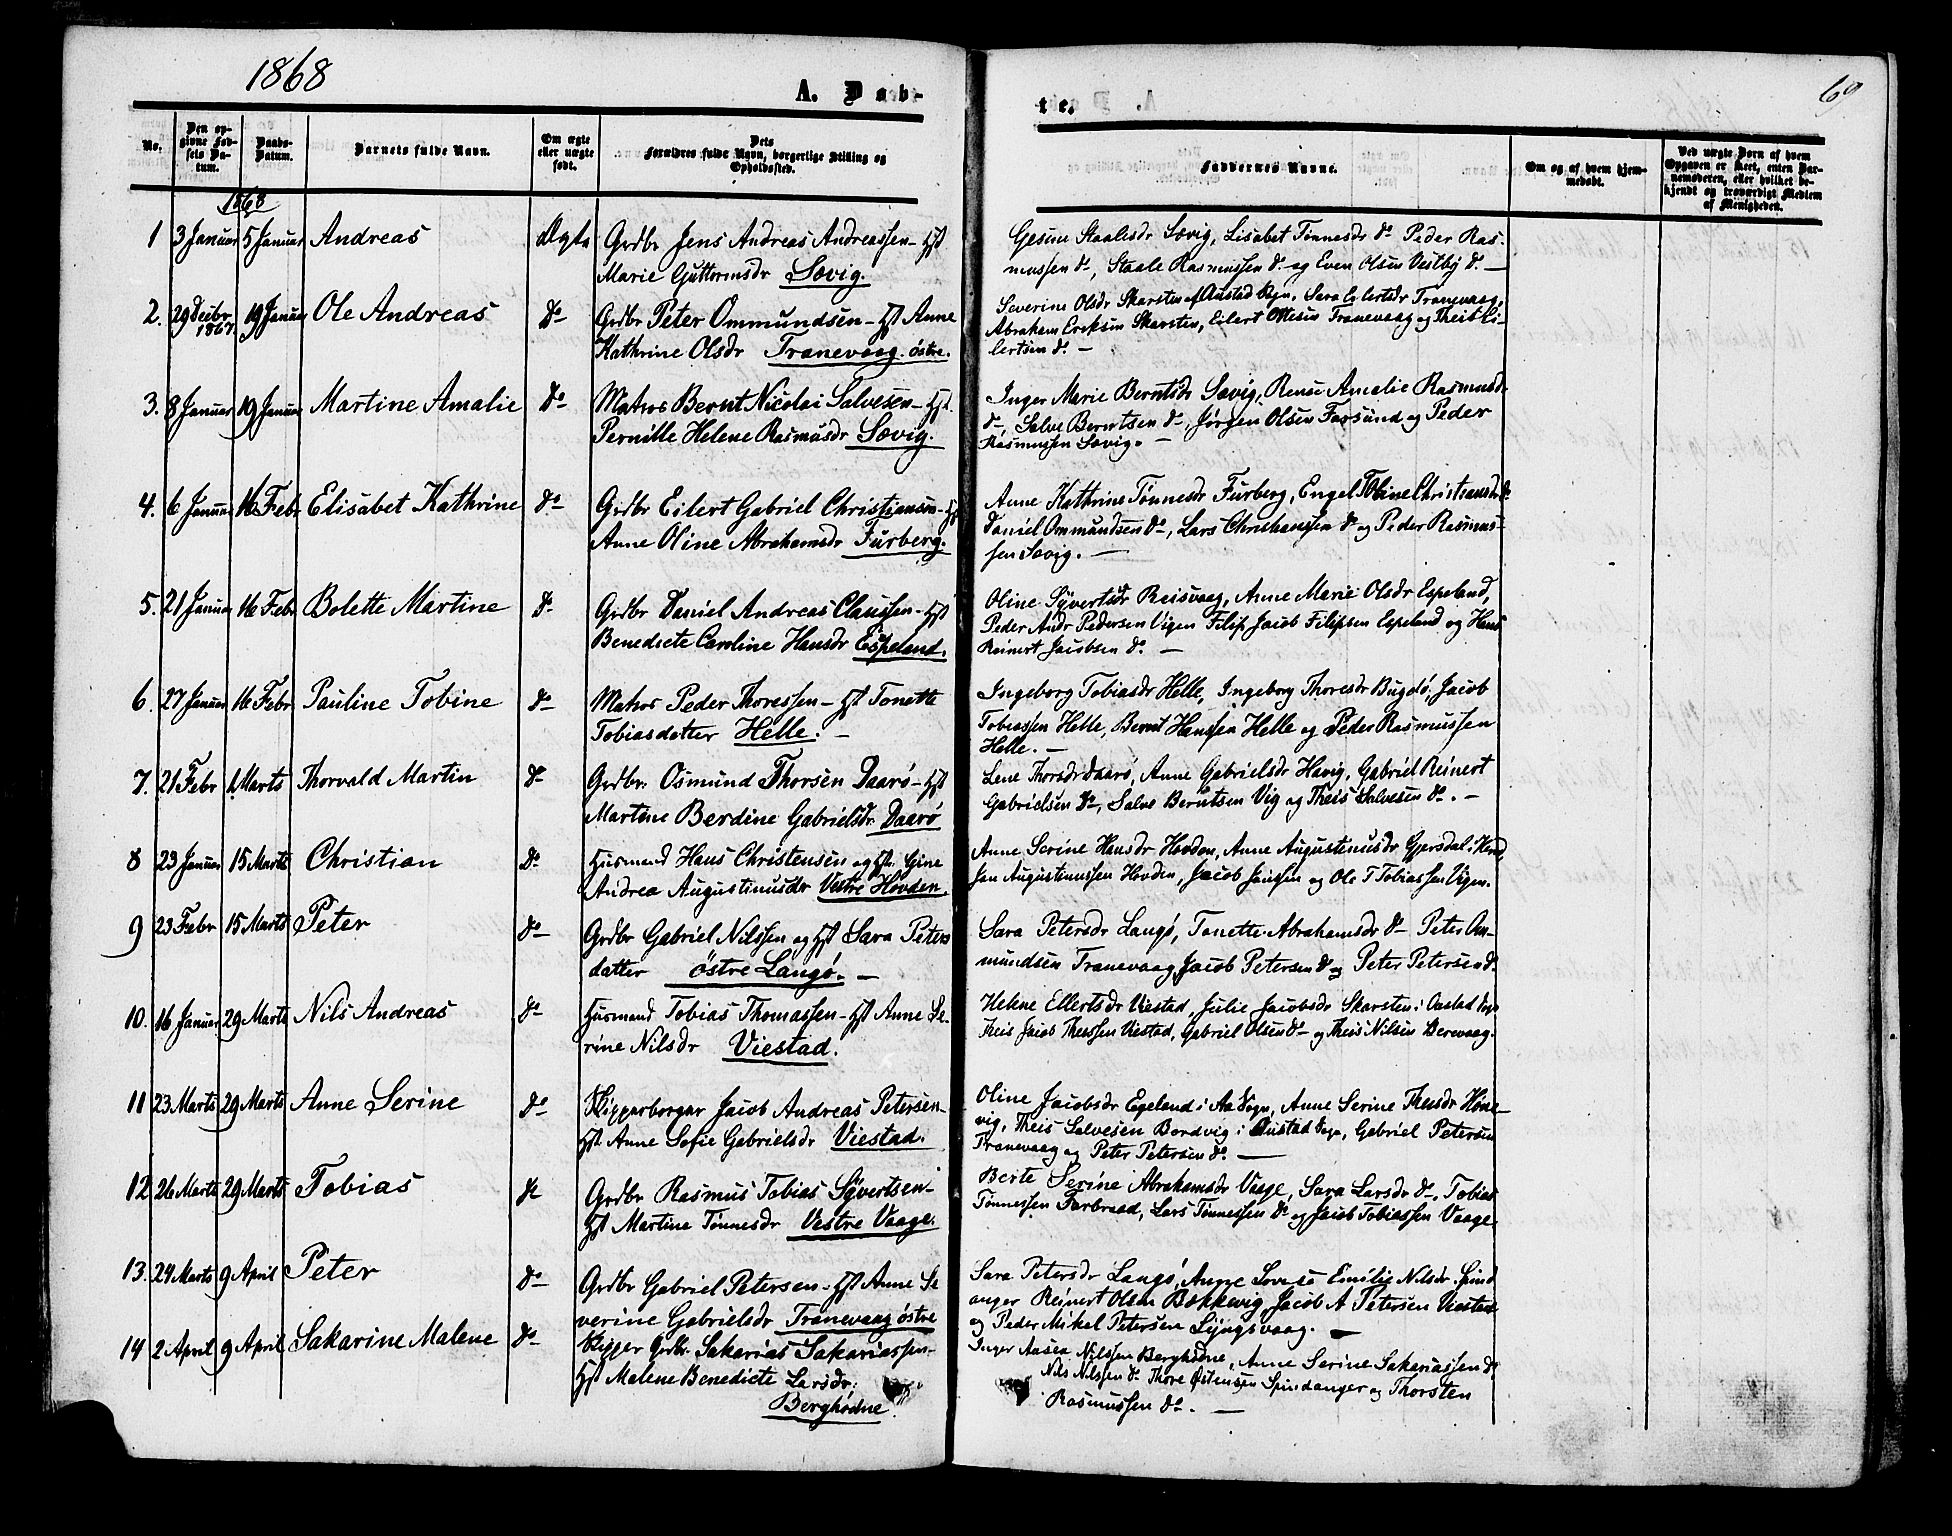 1868
A. Dab-
te.
69
No.
Den op-
givne Fød-
sels Da-
tum.
Daabs-
Datum.
Barnets fulde Navn.
Om ægte
eller uægte
født.
Dets
Forældres fulde Navn, borgerlige Stilling og
Opholdssted.
Faddernes Navne.
Om og af hvem hjem-
medøbt.
Ved uægte Born af hvem
Opgaven er skeet, enten Bar-
nemoderen, eller hvilket be-
kjendt og troværdigt Medlem
af Menigheden.
1868
1 3 Januar 5 Januar Andreas Ægte Grdbr Jens Andreas Andreassen – Hst
Marie Guttormsdr Søvig.
Gesine Staalesdr Søvig, Lisabet Tønnesdr do Peder Ras-
mussen do, Staale Rasmussen do og Even Olsen Vestby do. —
2. 29 Decbr 1867. 19 Januar Ole Andreas do Grdbr Peter Ommundsen – Hst Anne
Kathrine Olsdr Tranevaag. østre.
Severine Olsdr Skarsten af Austad Sogn, Sara Eilertsdr Tranevaag,
Abraham Ericksen Skarsten, Eilert Ottesen Tranevaag og Theis Ei-
lertsen do. —
3. 8 Januar 19 Januar Martine Amalie do Matros Bernt Nicolai Salvesen – Hst.
Pernille Helene Rasmusdr Søvig.
Inger Marie Berntsdr Søvig, Rense Amalie Rasmusdr
do, Salve Berntsen do, Jørgen Olsen Farsund og Peder
Rasmussen Søvig. —
4. 6 Januar 16 Febr Elisabet Kathrine do Grdbr Eilert Gabriel Christiansen – Hst
Anne Oline Abrahamsdr Furberg.
Anne Kathrine Tønnesdr Furberg, Engel Oline Christiansdr do
Daniel Ommundsen do, Lars Christianssen do og Peder Rasmus-
sen Søvig. —
5. 21 Januar 16 Febr Bolette Martine do Grdbr Daniel Andreas Claussen – Hst
Benedicte Caroline Hansdr Espeland.
Oline Syvertsdr Reisvaag, Anne Marie Olsdr Espeland,
Peder Andr Pedersen Vigen Filip Jacob Filipsen Espeland og Hans
Reinert Jacobsen do. —
6. 27 Januar 16 Febr Pauline Tobine do Matros Peder Thoressen – Hst Tonette
Tobiasdatter Helle. —
Ingeborg Tobiasdr Helle, Ingeborg Thoresdr Bugdø, Jacob
Tobiassen Helle, Bernt Hanssen Helle og Peder Rasmussen
Helle. —
7. 21 Febr 1 Marts Thorvald Martin do Grdbr. Osmund Thorsen Daarø – Hst
Martine Berdine Gabrielsdr Daarø
Lene Thorsdr Daarø, Anne Gabrielsdr Havig, Gabriel Reinert
Gabrielsen do, Salve Berntsen Vig og Theis Salvesen do. —
8 23 Januar 15 Marts Christian do Husmand Hans Christensen og Hst. Gine
Andrea Augustinusdr Vestre Hovden.
Anne Serine Hansdr Hovden, Anne Augustinusdr Gjersdal i
sen Augustinussen Hovden, Jacob Janssen og Ole T Tobiassen Vigen.
9 23 Febr 15 Marts Peter do Grdbr Gabriel Nilssen og Hst Sara Peters
datter østre Langø. —
Sara Petersdr Langø, Tonette Abrahamsdr do Peter Om-
mundsen Tranevaag, Jacob Petersen do og Peter Petersen do.
10. 16 Januar 29 Marts Nils Andreas do Husmand Tobias Thomassen – Hst Anne Se-
rine Nilsdr Viestad.
Helene Ellertsdr Viestad, Julie Jacobsdr Skarsten i Austad Sogn
Theis Jacob Theissen Viestad, Gabriel Olsen do og Theis Nilsen Berevaag.
11 23 Marts 29 Marts Anne Serine do Skipperborger Jacob Andreas Petersen –
Hst Anne Sofie Gabrielsdr Viestad.
Oline Jacobsdr Egeland i Aa Sogn, Anne Serine Theisdr Høne-
vig, Theis Salvesen Bordvig i Austad Sogn, Gabriel Petersen
Tranevaag og Peter Petersen do. —
12 26 Marts 29 Marts Tobias do Grdbr Rasmus Tobias Syvertsen –
Hst Martine Tønnesdr Vestre Vaage.
Berte Serine Abrahamsdr Vaage, Sara Larsdr do, Tobias
Tønnessen Farbraad, Lars Tønnessen do og Jacob Tobiassen Vaage
13. 24 Marts 9 April Peter do Grdbr Gabriel Petersen – Hst Anne Se
verine Gabrielsdr Tranevaag østre
Sara Petersdr Langø, Anne Lovise Emilie Nilsdr Spind
anger Reinert Olsen Bækkevig Jacob A Petersen Viestad
og Peder Mikal Petersen Lyngsvaag. —
14 2 April 9 April Sakarine Malene do Skipper Grdbr. Sakarias Sakariassen –
Hst Malene Benedicte Larsdr.
Berghødne.
Inger Aasea Nilssen Berghødne, Anne Serine Sakariassen do
Nils Nilssen do Thore Østensen Spindanger og Thorsten
Rasmussen do. —